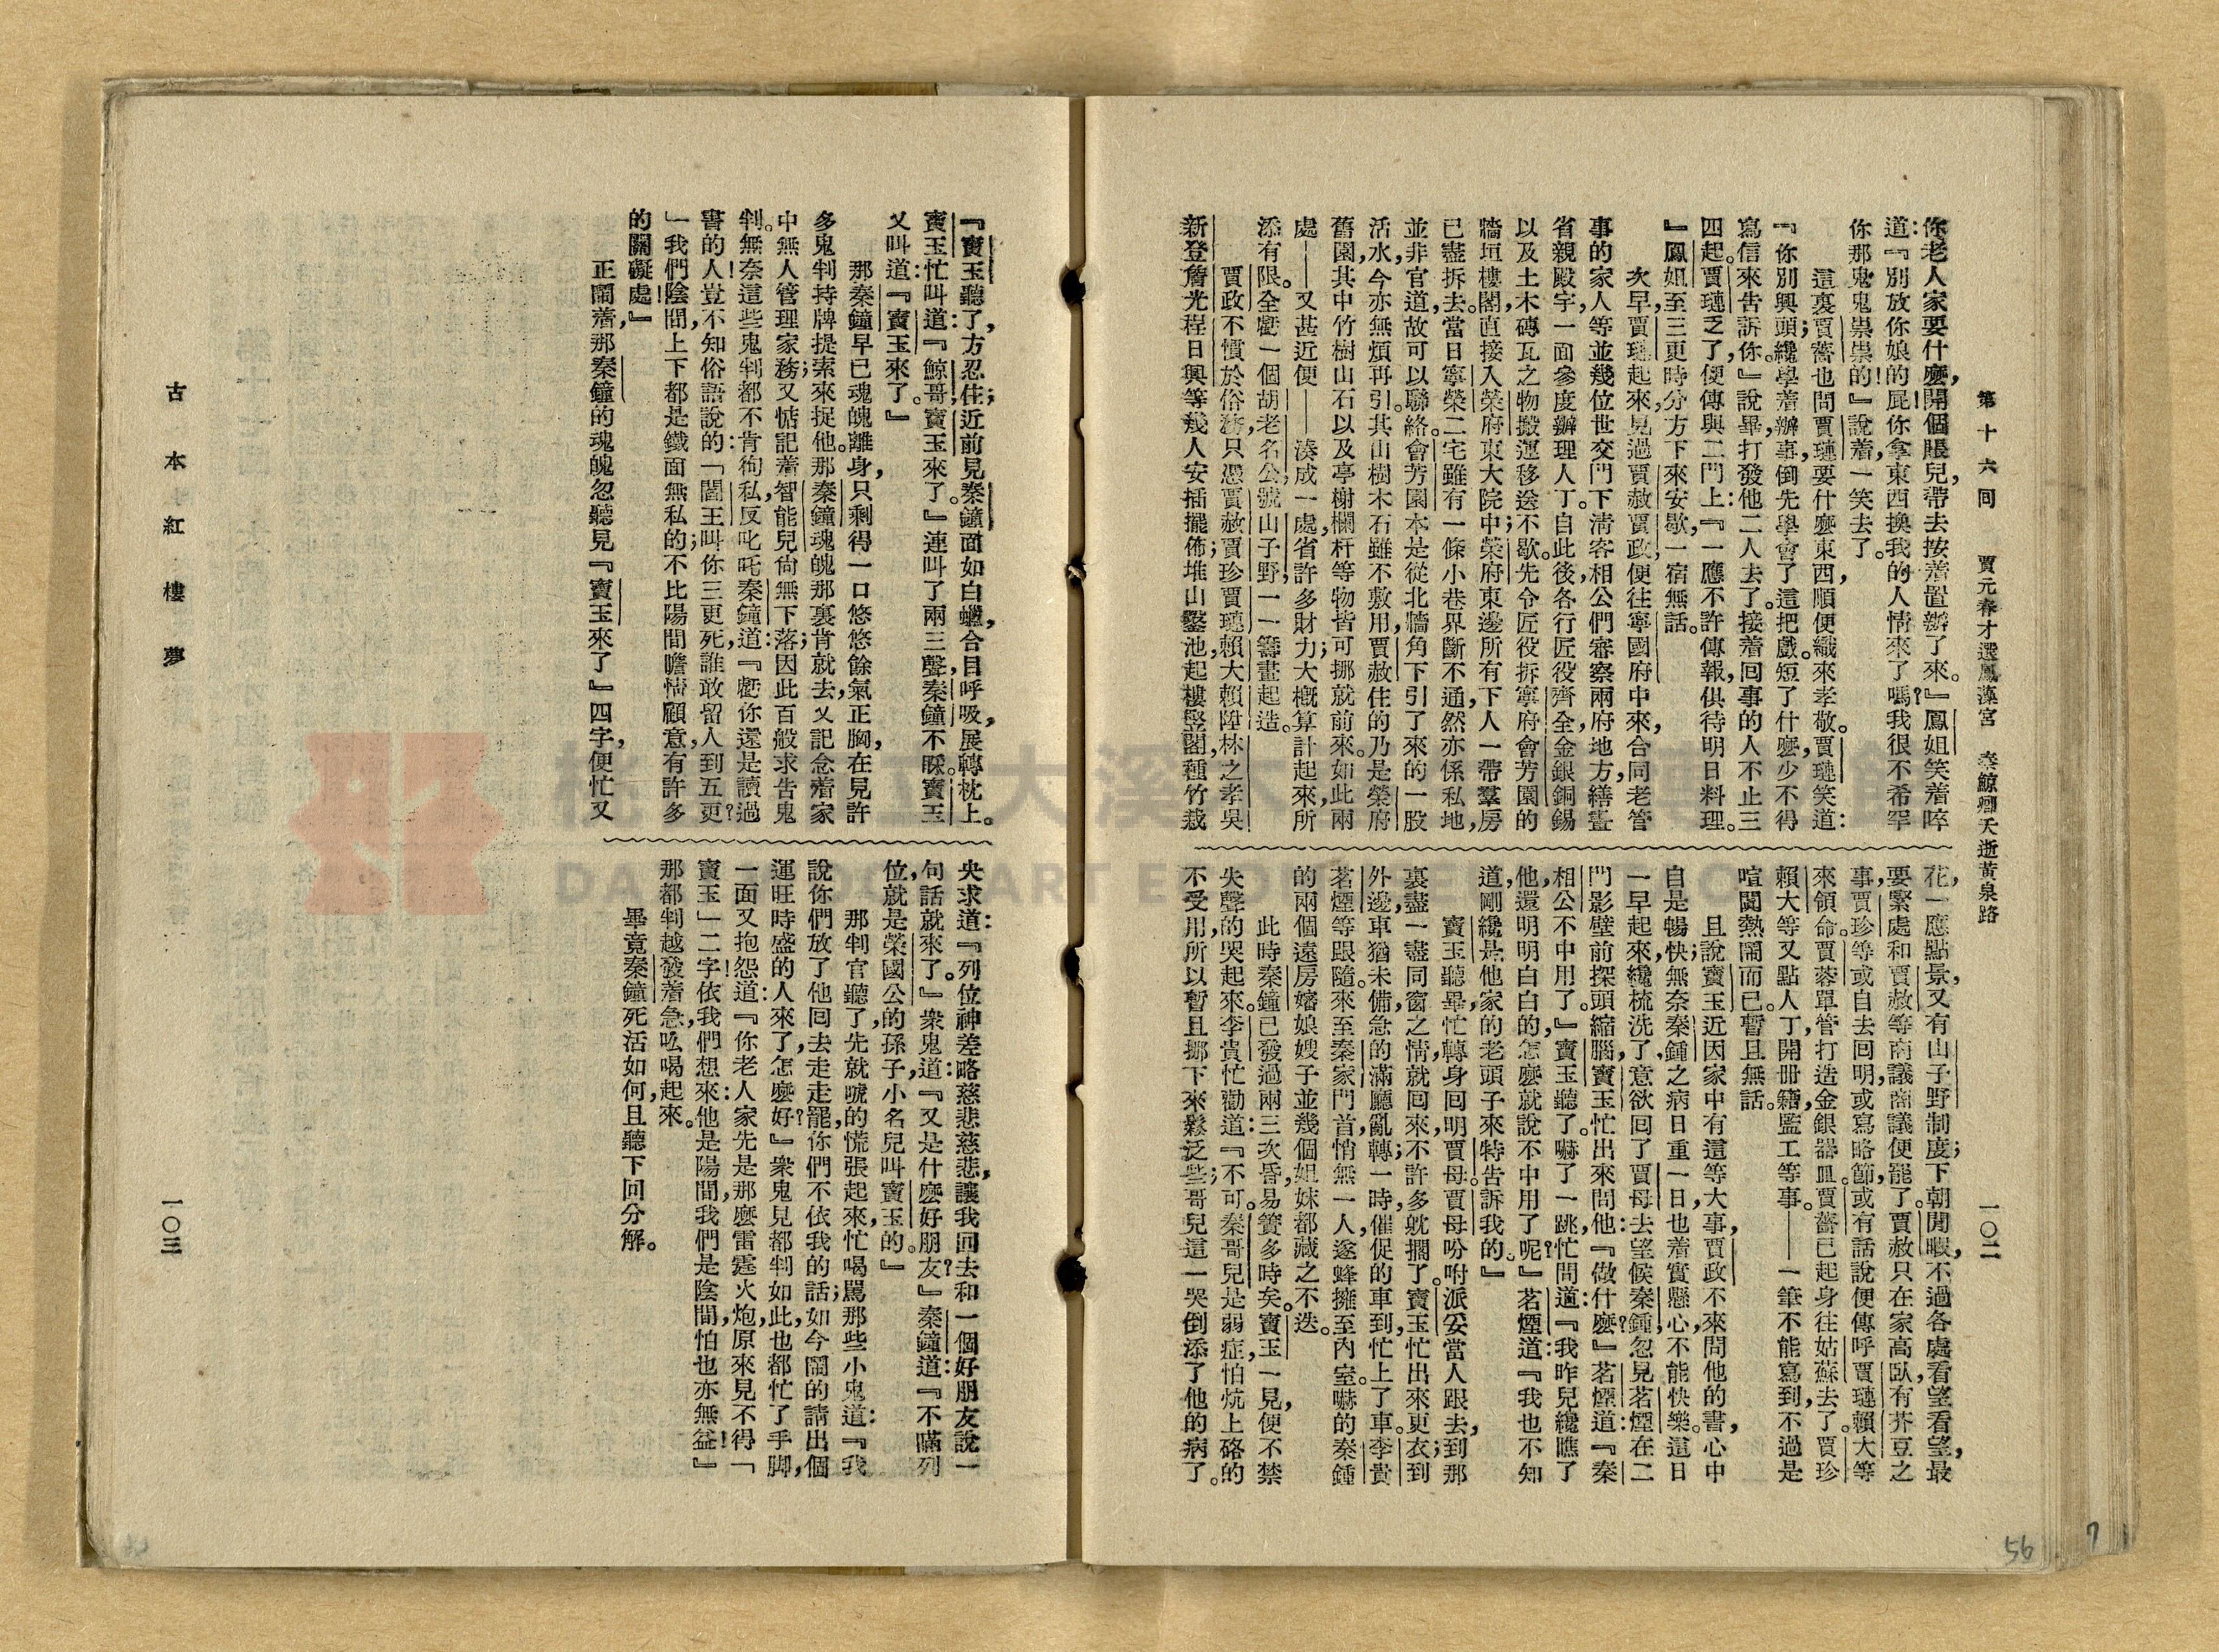 第十六回　賈元春才選鳳藻宮　秦鯨卿夭逝黃泉路　一〇二
你老人家要什麼,開個賬兒,帶去按着置辦了來。』鳳姐笑着啐
道:『別放你娘的屁!你拿東西換我的人情來了嗎?我很不希罕
你那鬼鬼祟祟的!』說着,一笑去了。
這裏賈薔也問賈璉要什麼東西,順便織來孝敬。賈璉笑道:
『你別興頭;纔學着辦事,倒先學會了這把戲。短了什麼,少不得
寫信來告訴你。』說畢,打發他二人去了。接着回事的人不止三
四起。賈璉乏了,便傳與二門上:『一應不許傳報,俱待明日料理。
』鳳姐至三更時分,方下來安歇,一宿無話。
次早,賈璉起來,見過賈赦賈政,便往寧國府中來,合同老管
事的家人等,並幾位世交門下清客相公們,審察兩府地方,繕畫
省親殿宇,一面參度辦理人丁。自此後,各行匠役齊全,金銀銅錫
以及土木磚瓦之物,搬運移送不歇。先令匠役拆寧府會芳園的
牆垣樓閣,直接入榮府東大院中;榮府東邊所有下人一帶羣房
已盡拆去。當日寧榮二宅,雖有一條小巷界斷不通,然亦係私地,
並非官道,故可以聯絡。會芳園本是從北牆角下引了來的一股
活水,今亦無煩再引。其山樹木石雖不敷用,賈赦住的乃是榮府
舊園,其中竹樹山石以及亭榭欄杆等物,皆可挪就前來。如此兩
處——又甚近便——湊成一處,省許多財力;大概算計起來,所
添有限。全虧一個胡老名公,號山子野,一一籌畫起造。
賈政不慣於俗務,只憑賈赦賈珍賈璉賴大賴陞林之孝吳
新登詹光程日興等幾人安插擺佈;堆山鑿池,起樓竪閣,種竹栽
花,一應點景,又有山子野制度;下朝閒暇,不過各處看望看望,最
要緊處和賈赦等商議商議便罷了。賈赦只在家高臥,有芥豆之
事,賈珍等或自去回明,或寫略節,或有話說,便傳呼賈璉賴大等
來領命。賈蓉單管打造金銀器皿。賈薔已起身往姑蘇去了。賈珍
賴大等又點人丁,開冊籍,監工等事。——一筆不能寫到,不過是
喧闐熱鬧而已。暫且無話。
且說寶玉近因家中有這等大事,賈政不來問他的書,心中
自是暢快;無奈秦鍾之病日重一日,也着實懸心,不能快樂。這日
一早起來,纔梳洗了,意欲回了賈母去望候秦鍾,忽見茗煙在二
門影壁前探頭縮腦,寶玉忙出來問他:『做什麼?』茗煙道:『秦
相公不中用了。』寶玉聽了。嚇了一跳,忙問道:『我昨兒纔瞧了
他,還明明白白的,怎麼就說不中用了呢?』茗煙道:『我也不知
道,剛纔是他家的老頭子來特告訴我的。』
寶玉聽畢,忙轉身回明賈母。賈母吩咐派妥當人跟去,到那
裏,盡一盡同窗之情,就回來,不許多躭擱了。寶玉忙出來更衣;到
外邊,車猶未備,急的滿廳亂轉;一時,催促的車到,忙上了車。李貴
茗煙等跟隨。來至秦家門首,悄無一人,遂蜂擁至內室。嚇的秦鍾
的兩個遠房嬸娘嫂子並幾個姐妹都藏之不迭。
此時秦鐘已發過兩三次昏,易簀多時矣。寶玉一見,便不禁
失聲的哭起來。李貴忙勸道:『不可。秦哥兒是弱症,怕炕上硌的
不受用,所以暫且挪下來鬆泛些;哥兒這一哭,倒添了他的病了。
『寶玉聽了,方忍住;近前見秦鐘面如白蠟,合目呼吸,展轉枕上。
寶玉忙叫道:『鯨哥!寶玉來了。』連叫了兩三聲,秦鐘不睬。寶玉
又叫道:『寶玉來了。』
那秦鐘早已魂魄離身,只剩得一口悠悠餘氣正胸,在見許
多鬼判持牌提索來捉他。那秦鐘魂魄那裏肯就去,又記念着家
中無人管理家務;又惦記着智能兒尙無下落;因此百般求告鬼
判。無奈這些鬼判都不肯徇私,反叱咤秦鐘道:『虧你還是讀過
書的人!豈不知俗語說的:「閻王叫你三更死,誰敢留人到五更?
」我們陰間,上下都是鐵面無私的;不比陽間瞻情顧意,有許多
的關礙處!』
正鬧着,那秦鐘的魂魄忽聽見『寶玉來了』四字,便忙又
央求道:『列位神差略慈悲慈悲,讓我回去和一個好朋友說一
句話,就來了。』衆鬼道:『又是什麼好朋友?』秦鐘道:『不瞞列
位,就是榮國公的孫子,小名兒叫寶玉的。』
那判官聽了,先就唬的慌張起來,忙喝罵那些小鬼道:『我
說你們放了他回去走走罷,你們不依我的話;如今鬧的請出個
運旺時盛的人來了,怎麼好?』衆鬼見都判如此,也都忙了手脚,
一面又抱怨道:『你老人家先是那麼雷霆火炮,原來見不得「
寶玉」二字!依我們想來:他是陽間,我們是陰間,怕也亦無益!』
那都判越發着急,吆喝起來。
畢竟秦鐘死活如何,且聽下回分解。
古本紅樓夢　一〇三
56
7